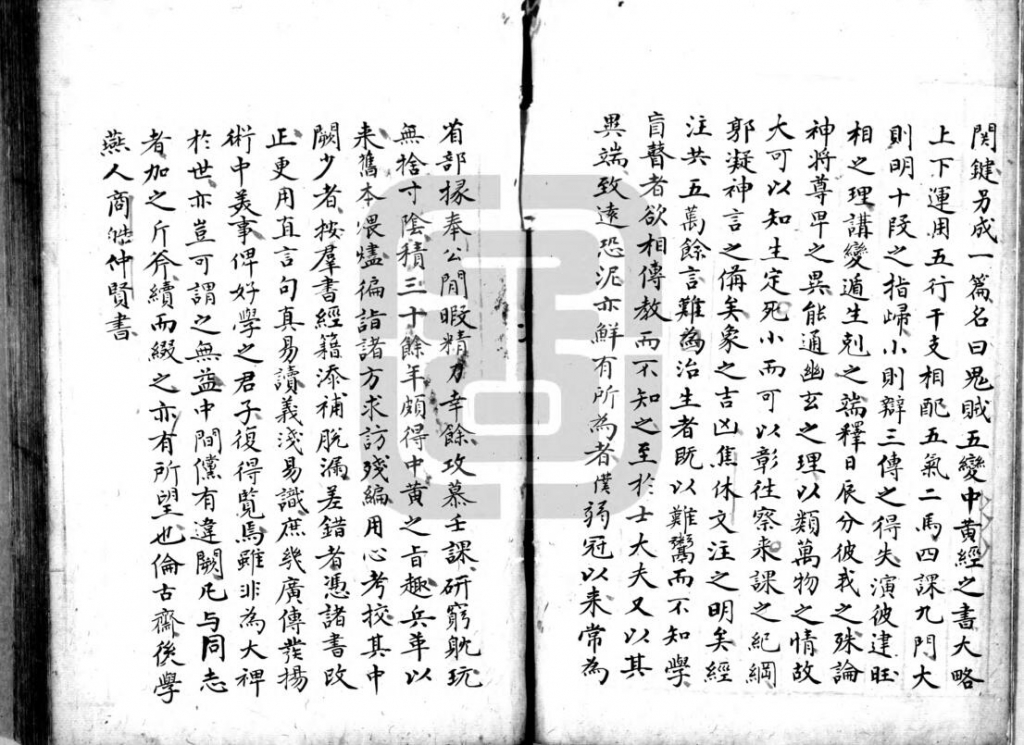 関鍵另成一篇名曰鬼賊五變中黄經之書大略
上下運用五行干支相配五氣二馬四課九門大
則明十叚之指歸小則辯三傳之得失演彼建旺
相之理講變遁生剋之端釋日辰分彼我之殊論
神将尊卑之異能通幽玄之理以類萬物之情故
大可以知生定死小而可以彰往察来課之紀綱
郭凝神言之備矣象之吉凶焦休文注之明矣經
注共五萬餘言難為治生者既以難鸑而不知學
盲瞽者欲相傳教而不知之至於士大夫又以其
異端致遠恐泥亦鮮有所為者僕弱冠以来常為
省部掾奉公閒暇精力幸餘攻慕壬課研窮躭玩
無捨寸陰積三十餘年頗得中黄之旨趣兵革以
来舊本煨燼徧詣諸方求訪殘編用心考校其中
闕少者按羣書經籍添補脱漏差錯者憑諸書改
正更用直言句真易讀義淺易識庶幾廣傳發揚
術中美事俾好學之君子復得覧焉雖非為大裨
於世亦豈可謂之無益中間儻有違闕凡与同志
者加之斤斧續而綴之亦有所望也倫古齋後學
燕人商皓仲賢書